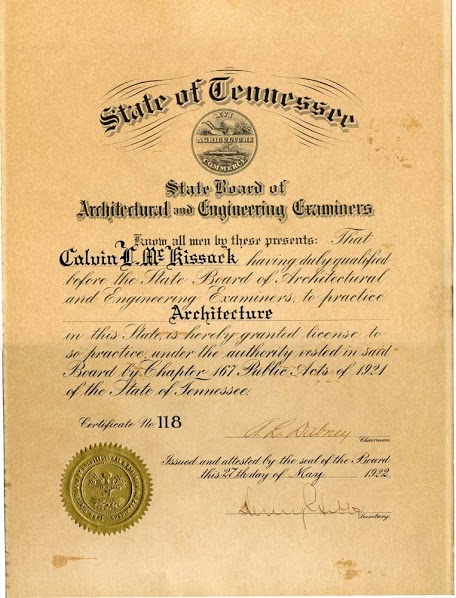 State of Tennessee
XVI
AGRICULTURE
COMMERCE
State Board of
Architectural and Engineering Examiners
Know all men by these presents: That
Calvin L. McKissack having duly qualified
before the State Board of Architectural
and Engineering Examiners, to practice
Architecture
in this State, is hereby granted license to
so practice, under the authority vested in said
Board by Chapter 167 Public Acts of 1921
of the State of Tennessee.
Certificate No 118
Chairman
Issued and attested by the seal of the Board
this 27th day of May 1922
Secretary.